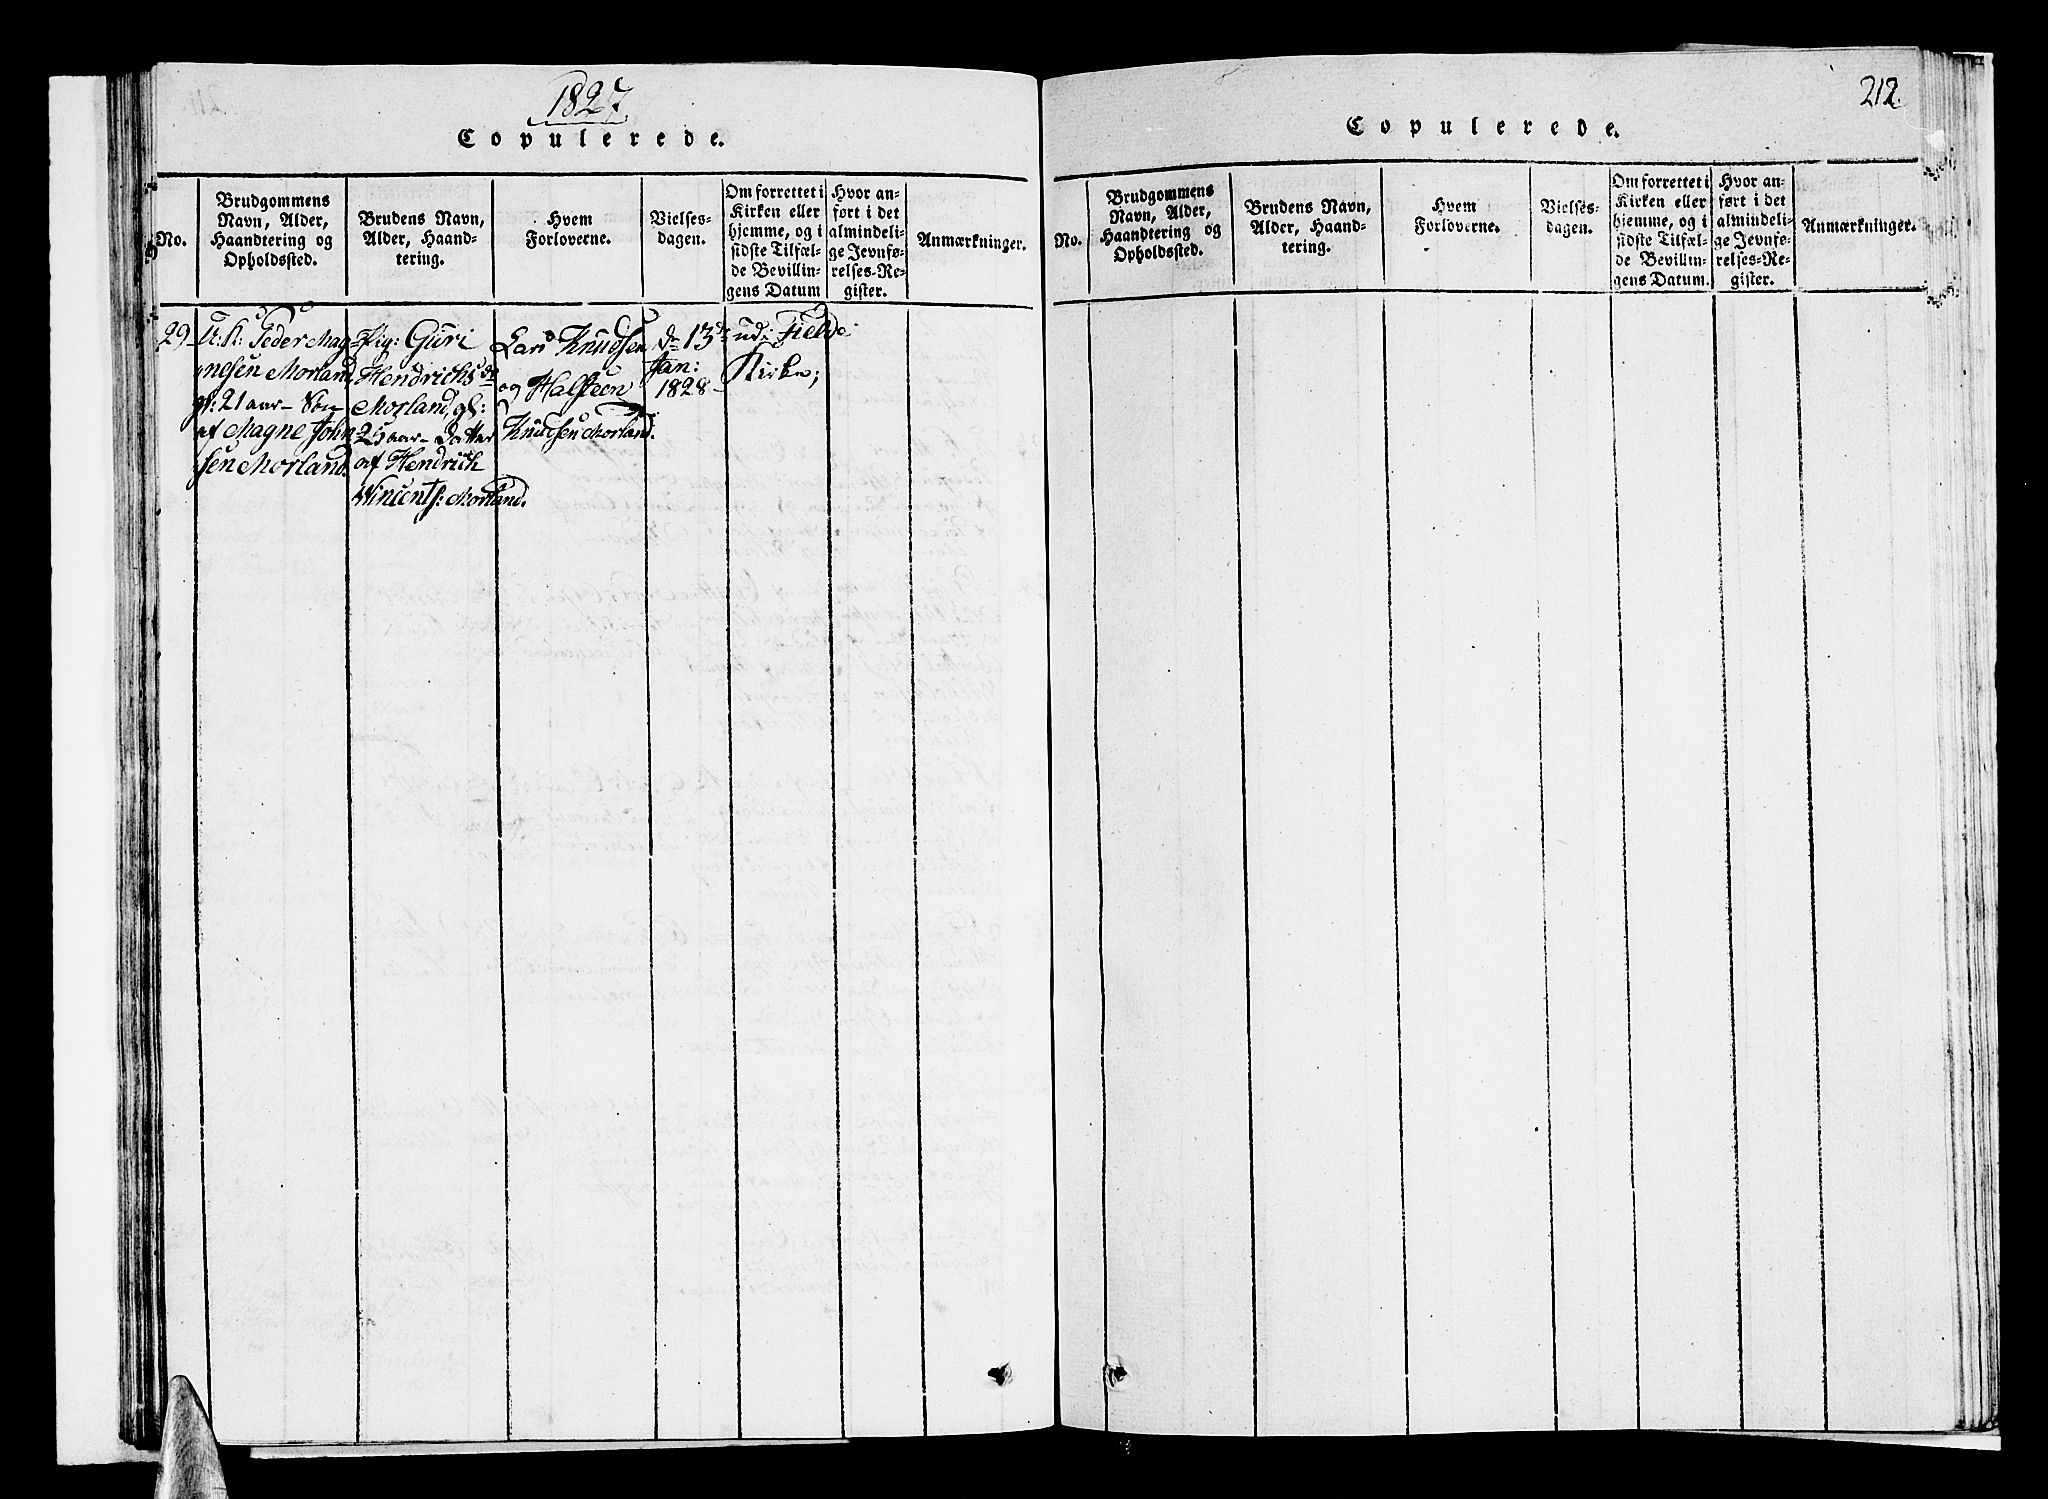 1827
Copulerede.
No.
Brudgommens
Navn, Alder,
Haandtering og
Opholdssted.
Brudens Navn,
Alder, Haand-
tering.
Hvem
Forloverne.
Vielses-
dagen.
Om forrettet i
Kirken eller
hjemme, og i
sidste Tilfæl-
de Bevillin-
gens Datum
Hvor an-
ført i det
almindeli-
ge Jevnfø-
relses-Re-
gister.
Anmærkninger.
29
U: K: Peder Mag-
nesen Morland
gl: 21 aar - Søn
af Magne John
sen Morland.
Pig: Guri
Hendrichsdr
Morland, gl:
25 aar - Datter
af Hendrich
Vincents: Morland.
Lars Knudsen
og Halsteen
Knudsen Morland.
d: 13de
Jan:
1828
udi Fielde
Kirke;
212.
Copulerede.
No.
Brudgommens
Navn, Alder,
Haandtering og
Opholdssted.
Brudens Navn,
Alder, Haand-
tering.
Hvem
Forloverne.
Vielses-
dagen.
Om forrettet i
Kirken eller
hjemme, og i
sidste Tilfæl-
de Bevillin-
gens Datum.
Hvor an-
ført i det
almindeli-
ge Jevnfø-
relses-Re-
gister.
Anmærkninger.